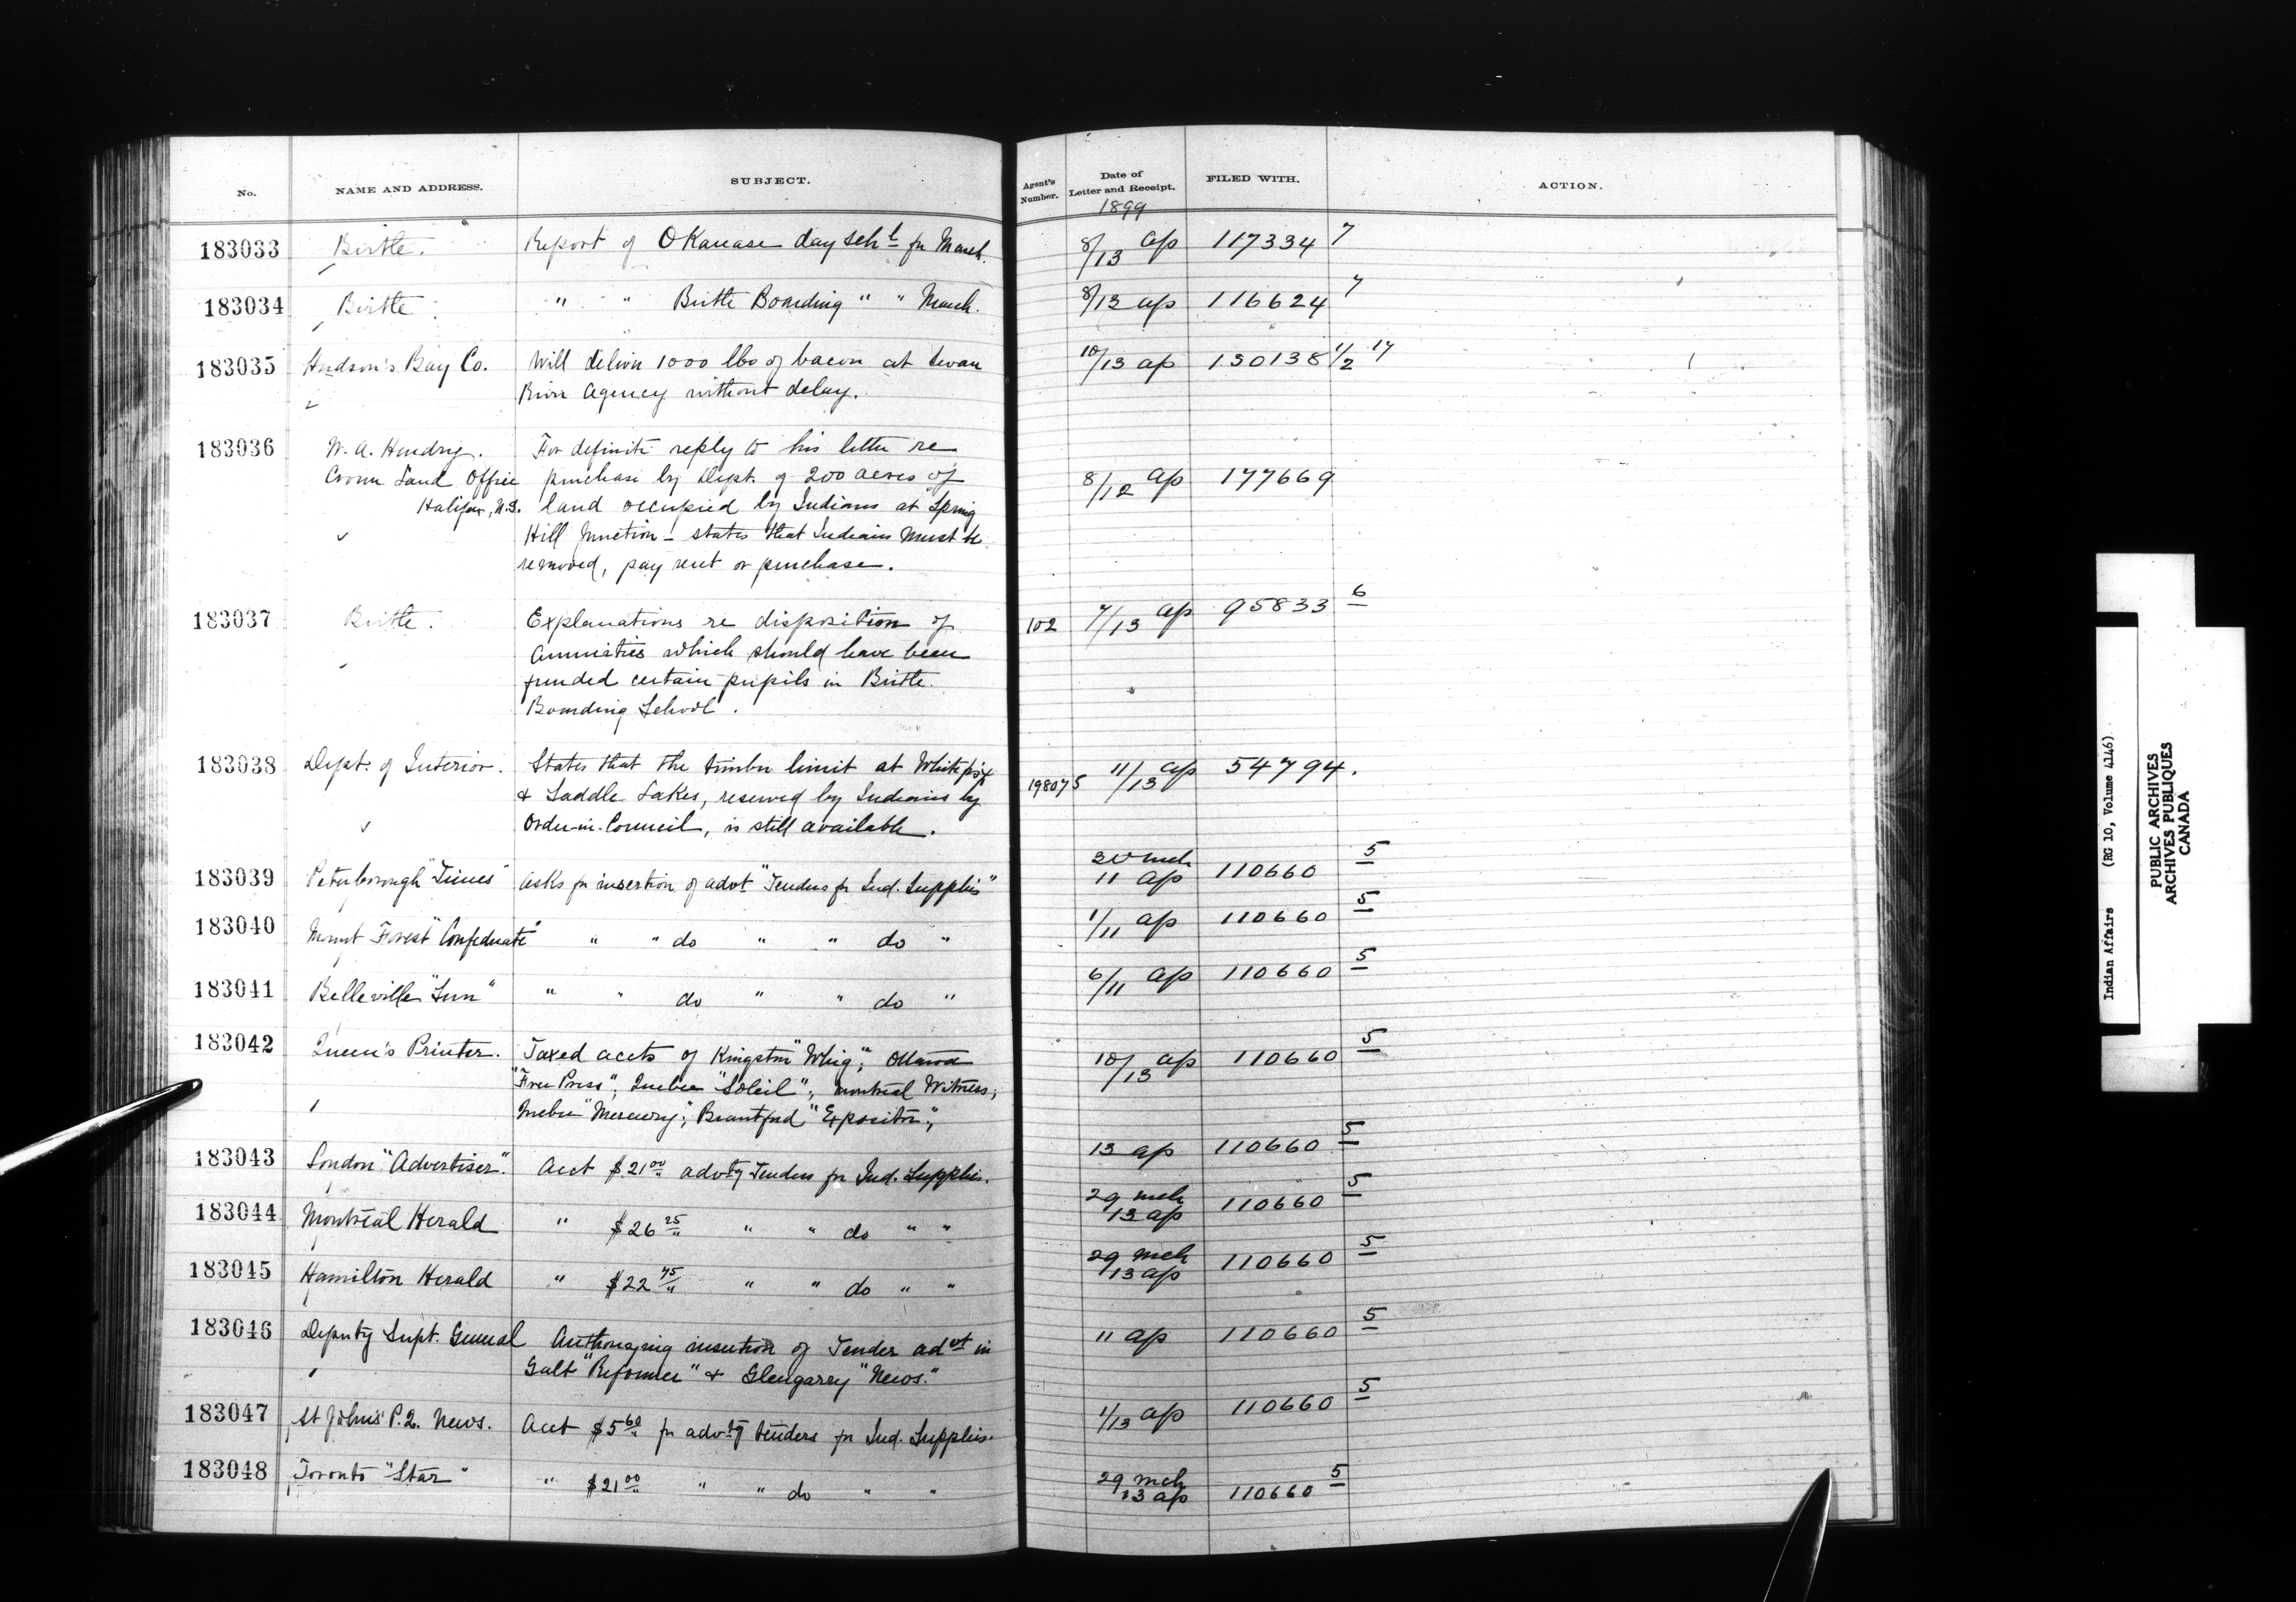 No. NAME AND ADDRESS. SUBJECT. Agent's Number. Date of Letter and Receipt. FILED WITH. ACTION.
1899
183033 Birtle. Report of OKanase day schl for March. 8/13 ap 117334 7
183034 Birtle " " Birtle Boarding " " March. 8/13 ap 116624 7
183035 Hudson's Bay Co. Will deliver 1000 lbs of bacon at Swan 10/13 ap 130138 1/2 17
River Agency without delay.
183036 W. A. Hendry. For definite reply to his letter re
Crown Land Office purchase by Dept. of 200 acres of 8/12 ap 177669
Halifax, N.S. land occupied by Indians at Spring
Hill Junction - states that Indians must be
removed, pay rent or purchase.
183037 Birtle. Explanations re disposition of 102 7/13 ap 95833 6
annuities which should have been
funded certain pupils in Birtle
Boarding School.
183038 Dept. of Interior. States that the timber limit at Whitefish 198075 11/13 ap 54794.
& Saddle Lakes, reserved by Indians by
Order-in-Council, is still available.
183039 Peterborough "Times" Asks for insertion of advt "Tenders for Ind. Supplies" 30 mch 11 ap 110660 5
183040 Mount Forest "Confederate" " " do " " do " 1/11 ap 110660 5
183041 Belleville "Sun" " " do " " do " 6/11 ap 110660 5
183042 Queen's Printer. Taxed accts of Kingston "Whig"; Ottawa 10/13 ap 110660 5
"Free Press"; Quebec "Soleil"; Montreal Witness;
Quebec "Mercury"; Brantford "Expositor";
183043 London "Advertiser". Acct $21 00 advtg Tenders for Ind. Supplies. 13 ap 110660 5
183044 Montreal Herald " $26 25 " " do " " 29 mch 13 ap 110660 5
183045 Hamilton Herald " $22 75 " " do " " 29 mch 13 ap 110660 5
183046 Deputy Supt. General Authorizing insertion of Tender advt in 11 ap 110660 5
Galt "Reformer" & Glengarry "News."
183047 St Johns P.Q. News. Acct $5 60 for advtg tenders for Ind. Supplies. 1/13 ap 110660 5
183048 Toronto "Star" " $21 00 " " do " " 29 mch 13 ap 110660 5
Indian Affairs (RG 10, Volume 4146)
PUBLIC ARCHIVES
ARCHIVES PUBLIQUES
CANADA